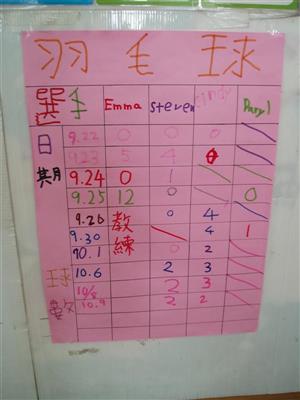 羽毛球
選手 Emma steven cindy Daryl
日期
9.22 0 0 0
9.23 5 4 0
9.24 0 1
9.25 12 0
9.26 教練 0 4
9.30 4 1
10.1 0 2
球數
10.6 2 3
10/8 2 3
10.9 2 2